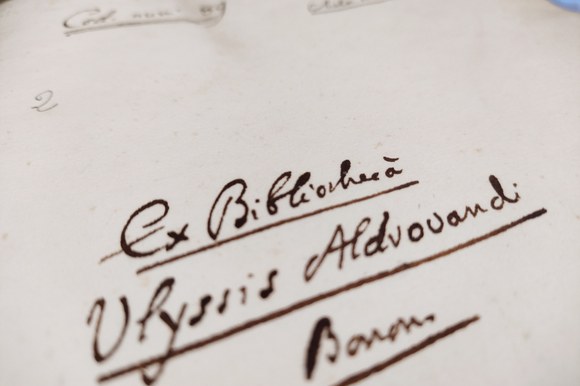 Cod. mm.
2
Ex Bibliothecà
Ulyssis Aldrovandi
Bonon.